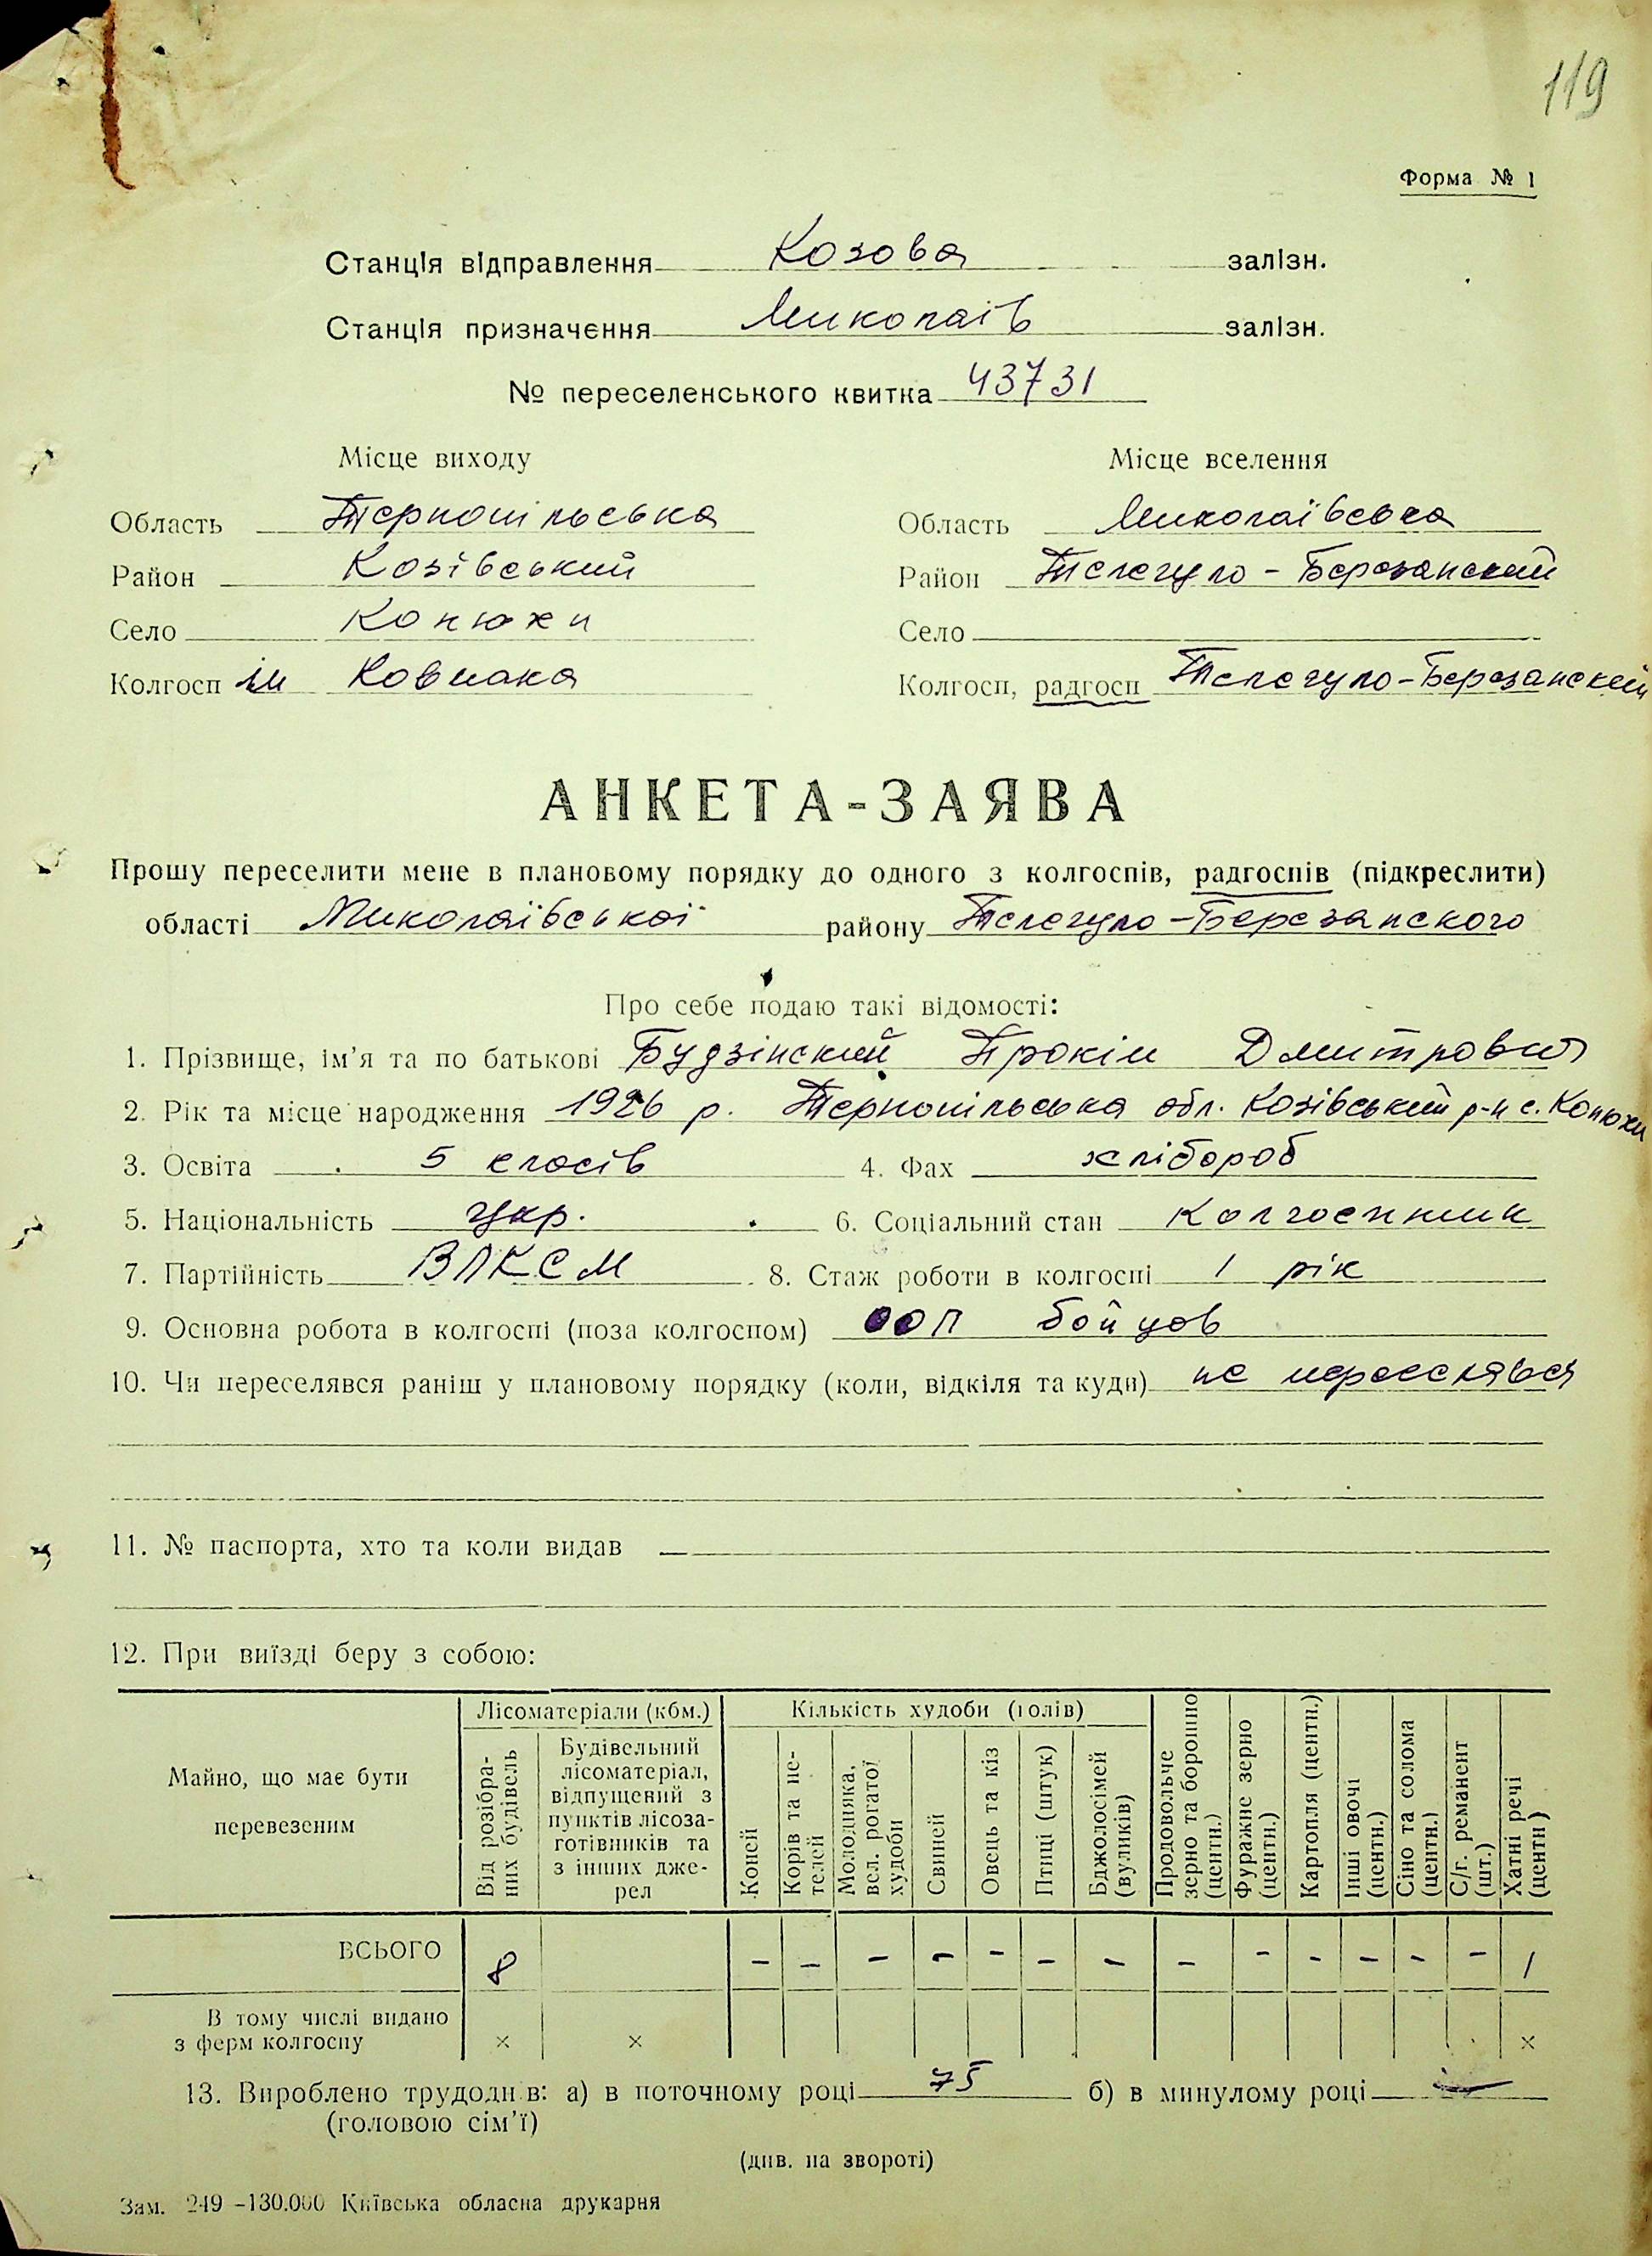 119
Форма № 1
Станція відправлення Козова залізн.
Станція призначення Миколаів залізн.
№ переселенського квитка 43731
Місце виходу Місце вселення
Область Тернопільська Область Миколаївська
Район Козівський Район Телегуло-Березанский
Село Конюхи Село
Колгосп ім Ковпака Колгосп, радгосп Телегуло-Березанский
АНКЕТА-ЗАЯВА
Прошу переселити мене в плановому порядку до одного з колгоспів, радгоспів (підкреслити)
області Миколаївської району Телегуло-Березанского
Про себе подаю такі відомості:
1. Прізвище, ім’я та по батькові Будзінский Прокіп Дмитрович
2. Рік та місце народження 1926 р. Тернопільська обл. Козівський р-н с. Конюхи
3. Освіта 5 класів 4. Фах хлібороб
5. Національність укр. 6. Соціальний стан колгоспник
7. Партійність ВЛКСМ 8. Стаж роботи в колгоспі 1 рік
9. Основна робота в колгоспі (поза колгоспом) бойцов
10. Чи переселявся раніш у плановому порядку (коли, відкіля та куди) не переселявся
11. № паспорта, хто та коли видав —
12. При виїзді беру з собою:
Майно, що має бути перевезеним
Лісоматеріали (кбм.)
Від розібраних будівель
Будівельний лісоматеріал, відпущений з пунктів лісозаготівників та з інших джерел
Кількість худоби (голів)
Коней
Корів та нетелей
Молодняка, вел. рогатої худоби
Свиней
Овець та кіз
Птиці (штук)
Бджолосімей (вуликів)
Продовольче зерно та борошно (центн.)
Фуражне зерно (центн.)
Картопля (центн.)
Інші овочі (центн.)
Сіно та солома (центн.)
С/г. реманент (шт.)
Хатні речі (центн)
ВСЬОГО 8 - - - - - - - - - - - - - 1
В тому числі видано
з ферм колгоспу × × ×
13. Вироблено трудоднів: а) в поточному році 75 б) в минулому році —
(головою сім’ї)
(див. на звороті)
Зам. 249 –130.000 Київська обласна друкарня